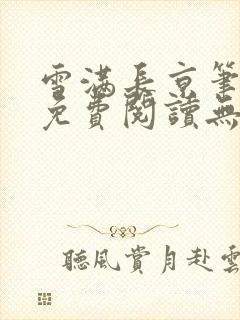 雪滿長京筆
免費閱讀無
聽風賞月赴雲